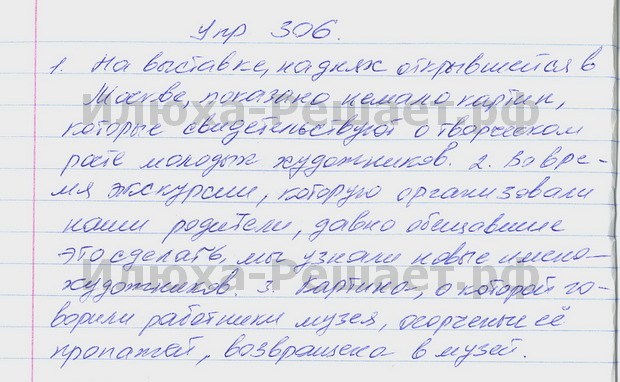 Упр 306.
1. На выставке, на днях открывшейся в
Москве, показано немало картин,
которые свидетельствуют о творческом
росте молодых художников. 2. Во вре-
мя экскурсии, которую организовали
наши родители, давно обещавшие
это сделать, мы узнали новые имена
художников. 3. Картина, о которой го-
ворили работники музея, огорченные её
пропажей, возвращена в музей.
Илюха-Решает.рф
Илюха-Решает.рф
Илюха-Решает.рф